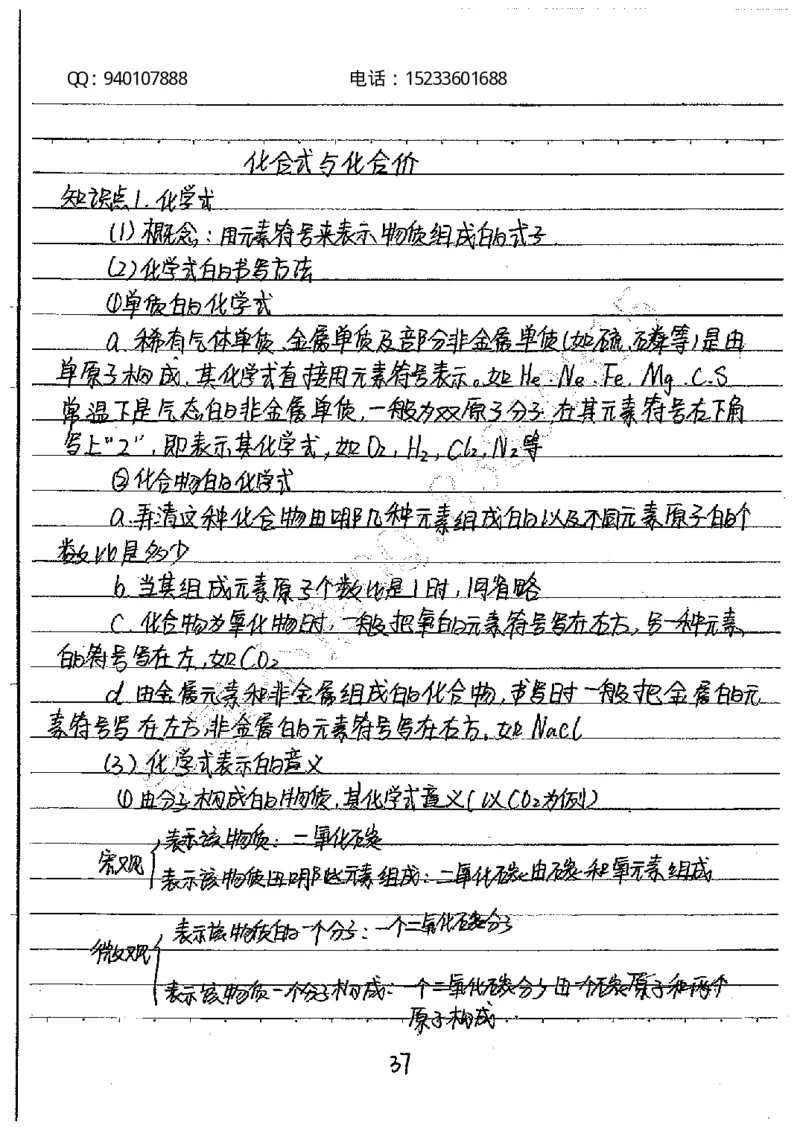 QQ：940107888 电话：15233601688
化合式与化合价
知识点1.化学式
(1)概念：用元素符号来表示物质组成的式子
(2)化学式的书写方法
①单质的化学式
a.稀有气体单质、金属单质及部分非金属单质(如硫、磷等)是由
单原子构成，其化学式直接用元素符号表示。如He、Ne、Fe、Mg、C、S
常温下是气态的非金属单质，一般为双原子分子，在其元素符号右下角
写上“2”，即表示其化学式，如O₂，H₂，Cl₂，N₂等
②化合物的化学式
a.弄清这种化合物由哪几种元素组成的以及不同元素原子的个
数比是多少
b.当其组成元素原子个数比是1时，1省略
C.化合物为氧化物时，一般把氧的元素符号写在右方，另一种元素
的符号写在左，如CO₂
d.由金属元素和非金属组成的化合物，书写时一般把金属的元
素符号写在左方，非金属的元素符号写在右方。如NaCl
(3)化学式表示的意义
①由分子构成的物质，其化学式意义(以CO₂为例)
表示该物质：二氧化碳
宏观
表示该物质由哪些元素组成：二氧化碳由碳和氧元素组成
表示该物质的一个分子：一个二氧化碳分子
微观
表示该物质一个分子构成：一个二氧化碳分子由一个碳原子和两个
原子构成
37